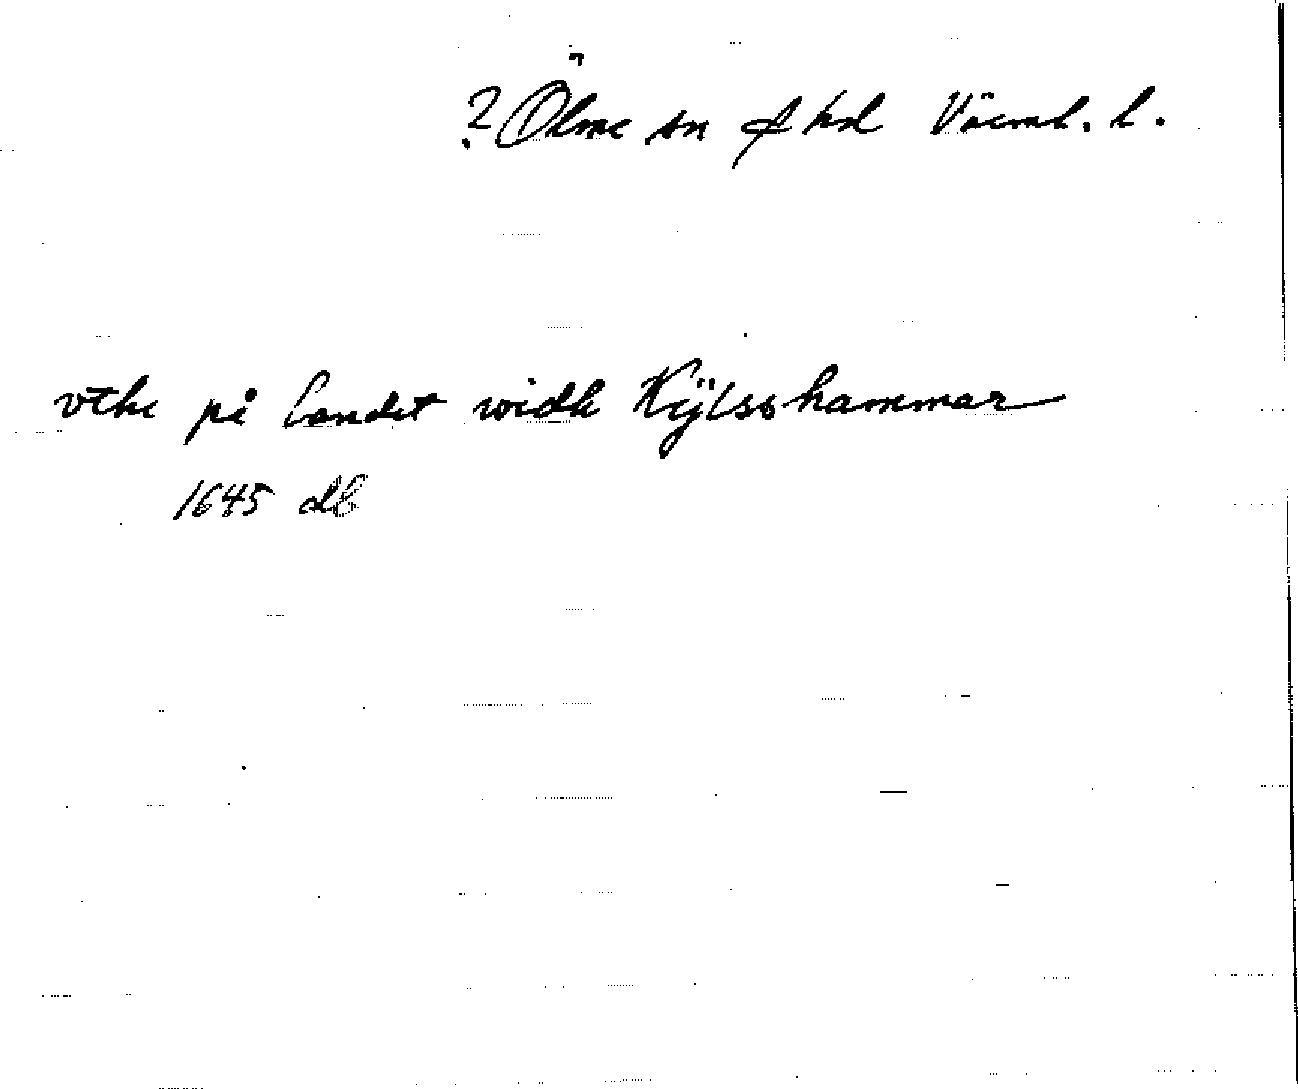 ? Ölme sn f hd Värml. l.
vthe på landet widh Kÿlsshammar
1645 db